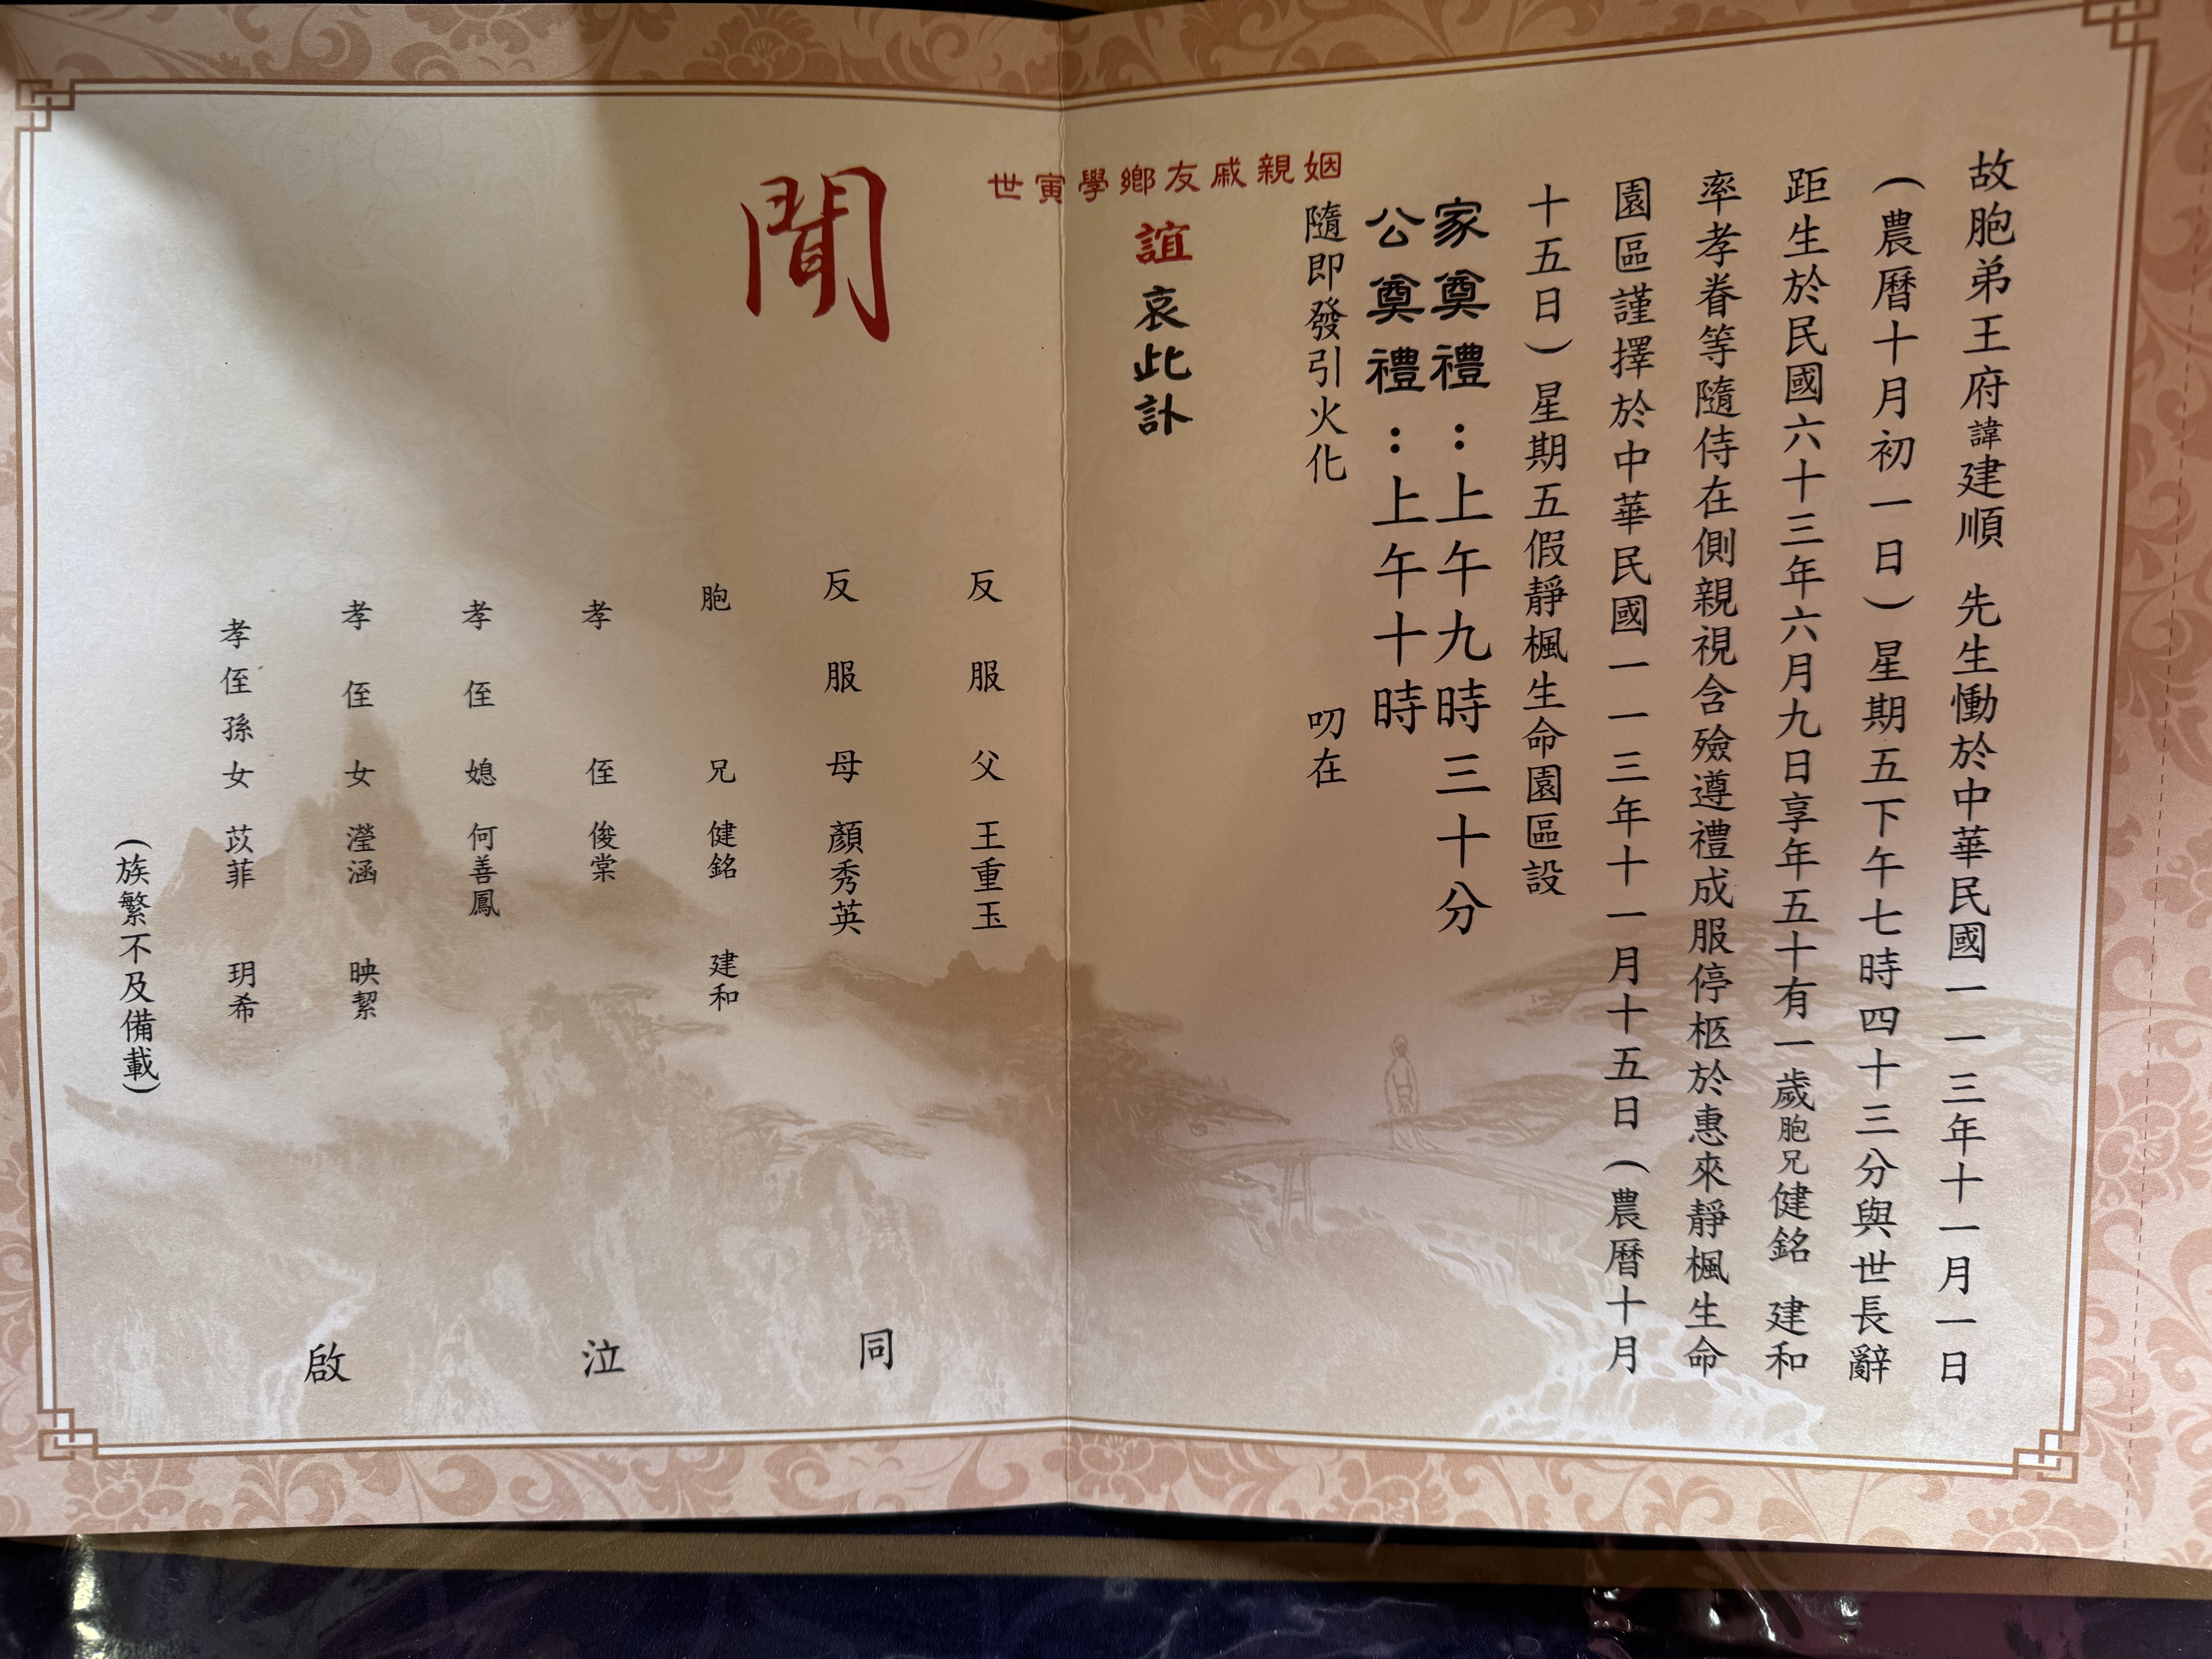 故胞弟王府諱建順 先生慟於中華民國一一三年十一月一日
（農曆十月初一日）星期五下午七時四十三分與世長辭
距生於民國六十三年六月九日享年五十有一歲胞兄健銘 建和
率孝眷等隨侍在側親視含殮遵禮成服停柩於惠來靜楓生命
園區謹擇於中華民國一一三年十一月十五日（農曆十月
十五日）星期五假靜楓生命園區設
家奠禮：上午九時三十分
公奠禮：上午十時
隨即發引火化 叨在
姻親戚友鄉學寅世
誼哀此訃
聞
反服父 王重玉
反服母 顏秀英
胞兄 健銘 建和
孝侄 俊棠
孝侄媳 何善鳳
孝侄女 瀅涵 映絜
孝侄孫女 苡菲 玥希
（族繁不及備載）
同泣啟